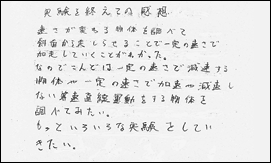 実験を終えての感想
速さが変わる物体を調べて
斜面から走しらせることで一定の速さで
加速していくことがわかった。
なのでこんどは一定の速さで減速する
物体や一定の速さで加速や減速し
ない等速直線運動をする物体を
調べてみたい。
もっといろいろな実験をしてい
きたい。